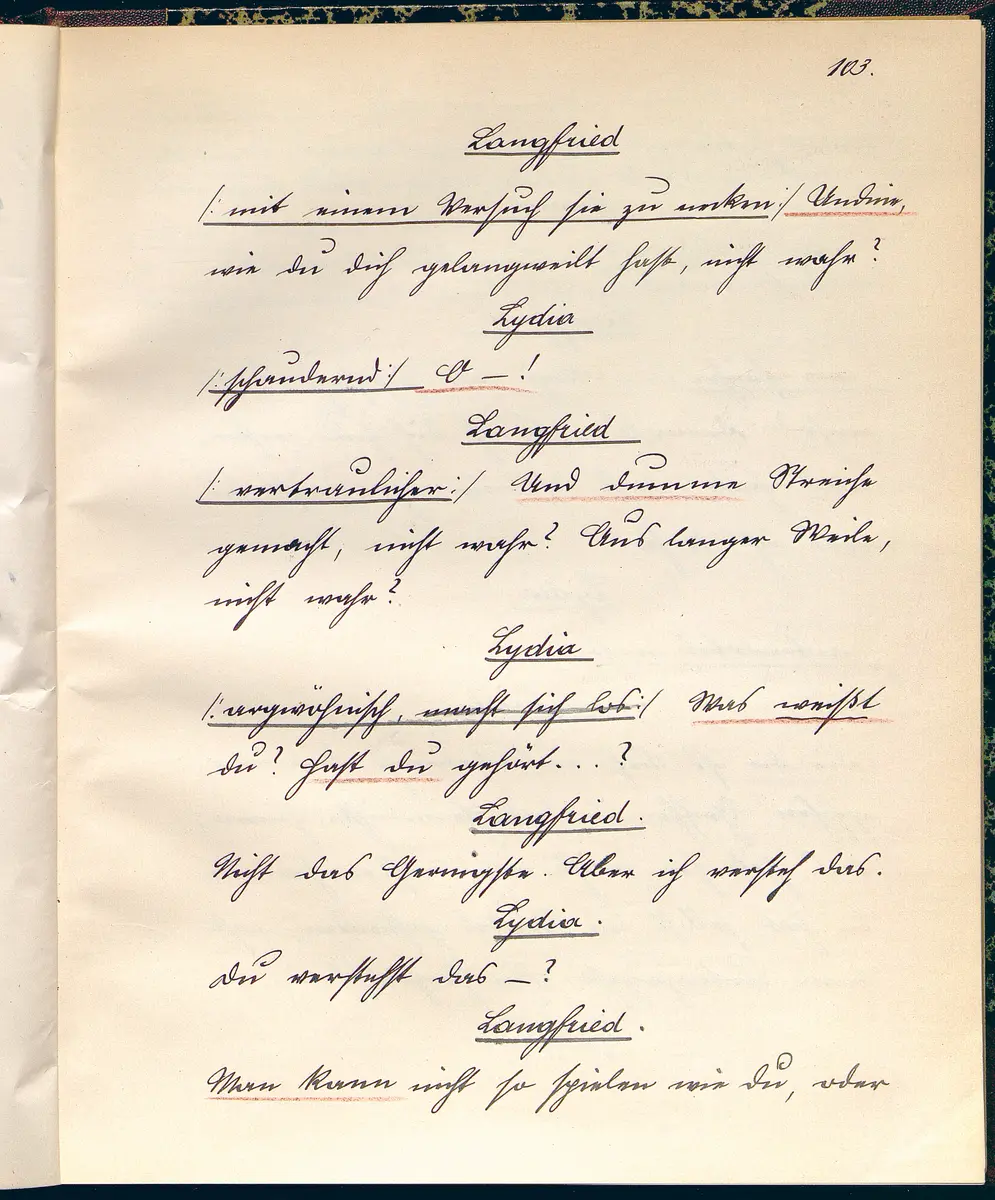 103.
Langfried
/: mit einem Versuch sie zu necken :/ Undine,
wie du dich gelangweilt hast, nicht wahr?
Lydia
/: schaudernd :/ O – !
Langfried
/: vertraulicher :/ Und dumme Streiche
gemacht, nicht wahr? Aus langer Weile,
nicht wahr?
Lydia
/: argwöhnisch, macht sich los :/ Was weißt
du? Hast du gehört . . . ?
Langfried.
Nicht das Geringste. Aber ich versteh das.
Lydia.
Du verstehst das – ?
Langfried.
Man kann nicht so spielen wie du, oder